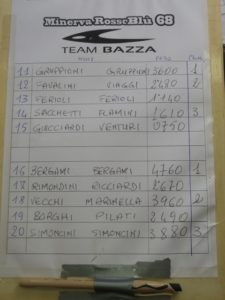 Minerva RossoBlù 68
TEAM BAZZA
11 GRUPPIONI GRUPPIONI 3600 1
12 FAVALINI VIAGGI 2480 2
13 FERIOLI FERIOLI 1140
14 SACCHETTI FLAMINI 1610 3
15 GUICCIARDI VENTURI 0750
16 BERGAMI BERGAMI 4760 1
17 RIMONDINI RICCIARDI 1670
18 VECCHI MARINELLA 3960 2
19 BORGHI PILATI 2490
20 SIMONCINI SIMONCINI 3880 3